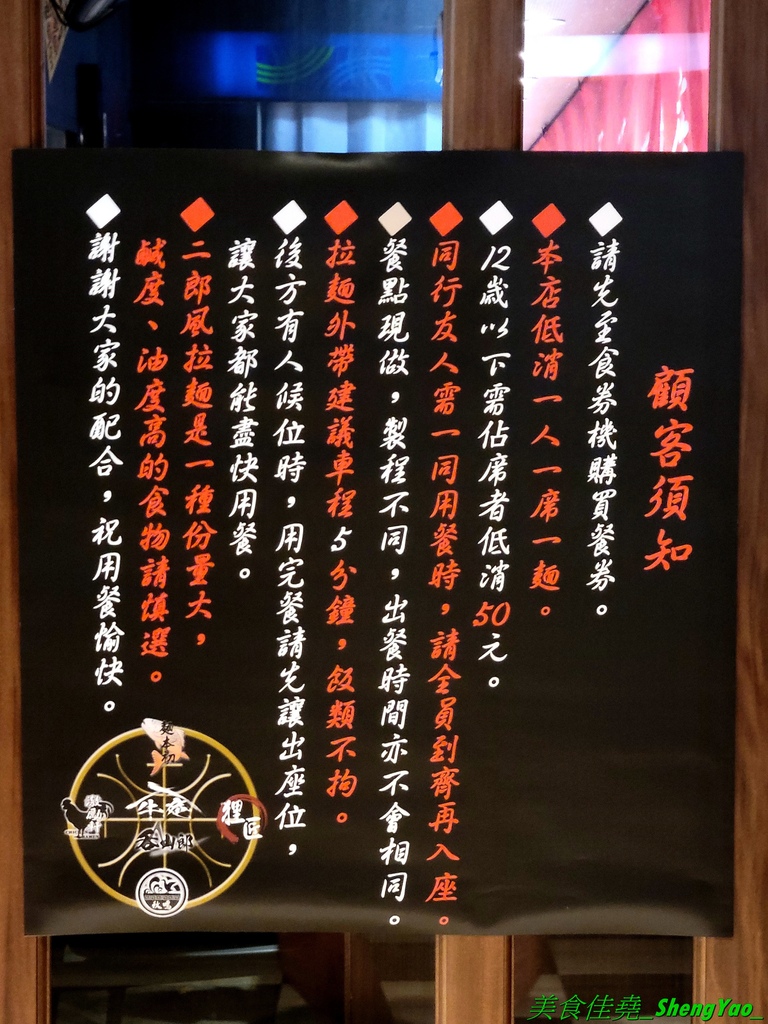 顧客須知
請先至食券機購買餐券。
本店低消一人一席一麵。
12歲以下需佔席者低消50元。
同行友人需一同用餐時，請全員到齊再入座。
餐點現做，製程不同，出餐時間亦不會相同。
拉麵外帶建議車程5分鐘，飯類不拘。
後方有人候位時，用完餐請先讓出座位，
讓大家都能盡快用餐。
二郎風拉麵是一種份量大，
鹹度、油度高的食物請慎選。
謝謝大家的配合，祝用餐愉快。
狸匠
吞山郎
美食佳堯_ShengYao_